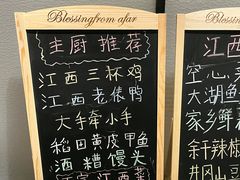 Blessingfrom afar
主厨推荐
江西三杯鸡
江西老俵鸭
大手牵小手
稻田黄皮甲鱼
酒糟馒头
Blessingfrom
江西
空心
大湖鱼
家乡鲜
余干辣椒
井冈豆